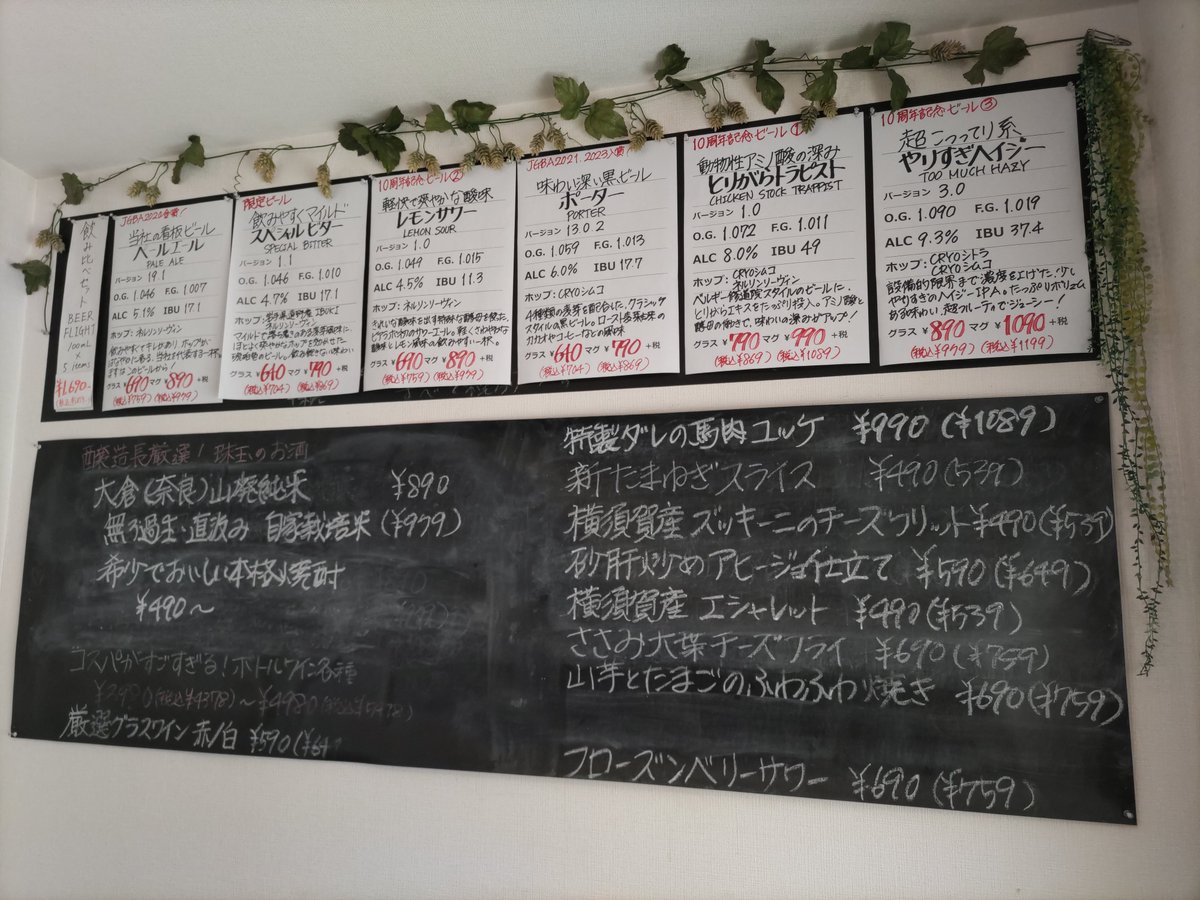 飲み比べセット
BEER
FLIGHT
100mL
×
5 items
¥1,690-
JGBA2020受賞!
当社の看板ビール
ペールエール
PALE ALE
バージョン 19.1
O.G. 1.046 F.G. 1.007
ALC 5.1% IBU 17.1
ホップ:ネルソンソーヴィン
グラス ¥690 マグ ¥890 +税
(税込¥759) (税込¥979)
限定ビール
飲みやすくマイルド
スペシャルビター
SPECIAL BITTER
バージョン 1.1
O.G. 1.046 F.G. 1.010
ALC 4.7% IBU 17.1
グラス ¥640 マグ ¥790 +税
(税込¥704) (税込¥869)
10周年記念ビール②
軽快で爽やかな酸味
レモンサワー
LEMON SOUR
バージョン 1.0
O.G. 1.049 F.G. 1.015
ALC 4.5% IBU 11.3
ホップ:ネルソンソーヴィン
グラス ¥690 マグ ¥890 +税
(税込¥759) (税込¥979)
JGBA2021.2023入賞!
味わい深い黒ビール
ポーター
PORTER
バージョン 13.0.2
O.G. 1.059 F.G. 1.013
ALC 6.0% IBU 17.7
ホップ:CRYOシムコ
グラス ¥640 マグ ¥790 +税
(税込¥704) (税込¥869)
10周年記念ビール①
動物性アミノ酸の深み
とりがらトラピスト
CHICKEN STOCK TRAPPIST
バージョン 1.0
O.G. 1.072 F.G. 1.011
ALC 8.0% IBU 49
ホップ:CRYOシムコ
ネルソンソーヴィン
ベルギー修道院スタイルのビールに、
とりがらエキスをたっぷり投入。アミノ酸と
酵母の働きで、味わいの深みがアップ!
グラス ¥790 マグ ¥990 +税
(税込¥869) (税込¥1089)
10周年記念ビール③
超こってり系
やりすぎヘイジー
TOO MUCH HAZY
バージョン 3.0
O.G. 1.090 F.G. 1.019
ALC 9.3% IBU 37.4
ホップ:CRYOシトラ
CRYOシムコ
設備的限界まで濃度を上げた、少し
やりすぎのヘイジーIPA。たっぷりボリューム
ある味わい、超フルーティでジューシー!
グラス ¥890 マグ ¥1090 +税
(税込¥979) (税込¥1199)
醸造長厳選!珠玉のお酒
大倉(奈良)山廃純米 ¥890
無ろ過生・直汲み 自家栽培米 (¥979)
希少でおいしい本格焼酎
¥490〜
コスパがすごすぎる!ボトルワイン各種
厳選グラスワイン 赤/白 ¥590
特製ダレの馬肉ユッケ ¥990 (¥1089)
新たまねぎスライス ¥490 (539)
横須賀産 ズッキーニのチーズフリット ¥490 (¥539)
砂肝炒めアヒージョ仕立て ¥590 (¥649)
横須賀産 エシャレット ¥490 (¥539)
ささみ大葉チーズフライ ¥690 (¥759)
山芋とたまごのふわふわ焼き ¥690 (¥759)
フローズンベリーサワー ¥690 (¥759)